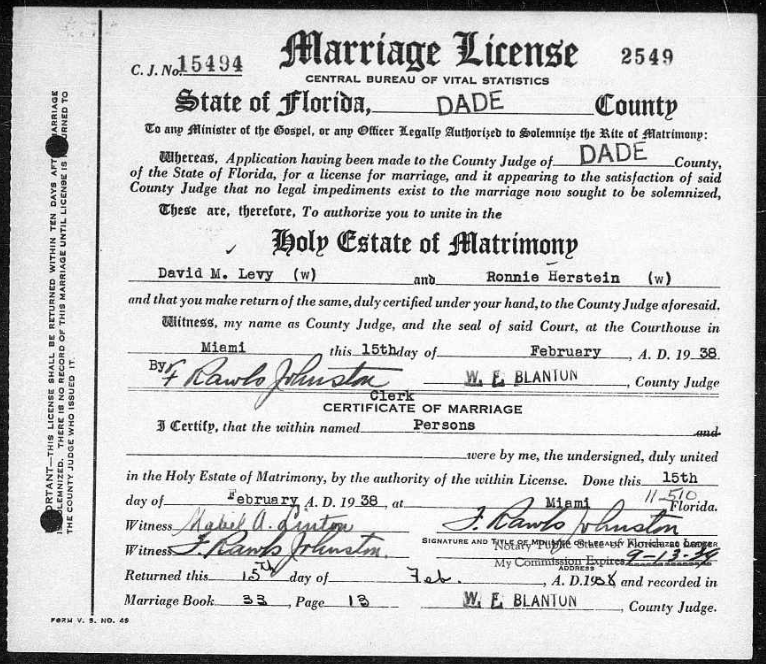 Marriage License
C. J. No. 15494
2549
CENTRAL BUREAU OF VITAL STATISTICS
State of Florida, DADE County
To any Minister of the Gospel, or any Officer Legally Authorized to Solemnize the Rite of Matrimony:
Whereas, Application having been made to the County Judge of DADE County,
of the State of Florida, for a license for marriage, and it appearing to the satisfaction of said
County Judge that no legal impediments exist to the marriage now sought to be solemnized,
These are, therefore, To authorize you to unite in the
Holy Estate of Matrimony
David M. Levy (w) and Ronnie Herstein (w)
and that you make return of the same, duly certified under your hand, to the County Judge aforesaid.
Witness, my name as County Judge, and the seal of said Court, at the Courthouse in
Miami this 15th day of February, A. D. 19 38
By F Rawls Johnston W. E. BLANTON, County Judge
Clerk
CERTIFICATE OF MARRIAGE
I Certify, that the within named Persons and
were by me, the undersigned, duly united
in the Holy Estate of Matrimony, by the authority of the within License. Done this 15th
day of February A. D. 19 38, at Miami Florida.
11-510
Witness Mabel A. Linton F. Rawls Johnston
SIGNATURE AND TITLE OF
Witness F. Rawls Johnston. Notary Public State of Florida at Large
My Commission Expires 9-13-39
ADDRESS
Returned this 15th day of Feb., A. D. 1938 and recorded in
Marriage Book 33, Page 13 W. E. BLANTON, County Judge.
FORM V. S. NO. 49
ORTANT—THIS LICENSE SHALL BE RETURNED WITHIN TEN DAYS AFT MARRIAGE
OLEMNIZED. THERE IS NO RECORD OF THIS MARRIAGE UNTIL LICENSE IS URNED TO
THE COUNTY JUDGE WHO ISSUED IT.